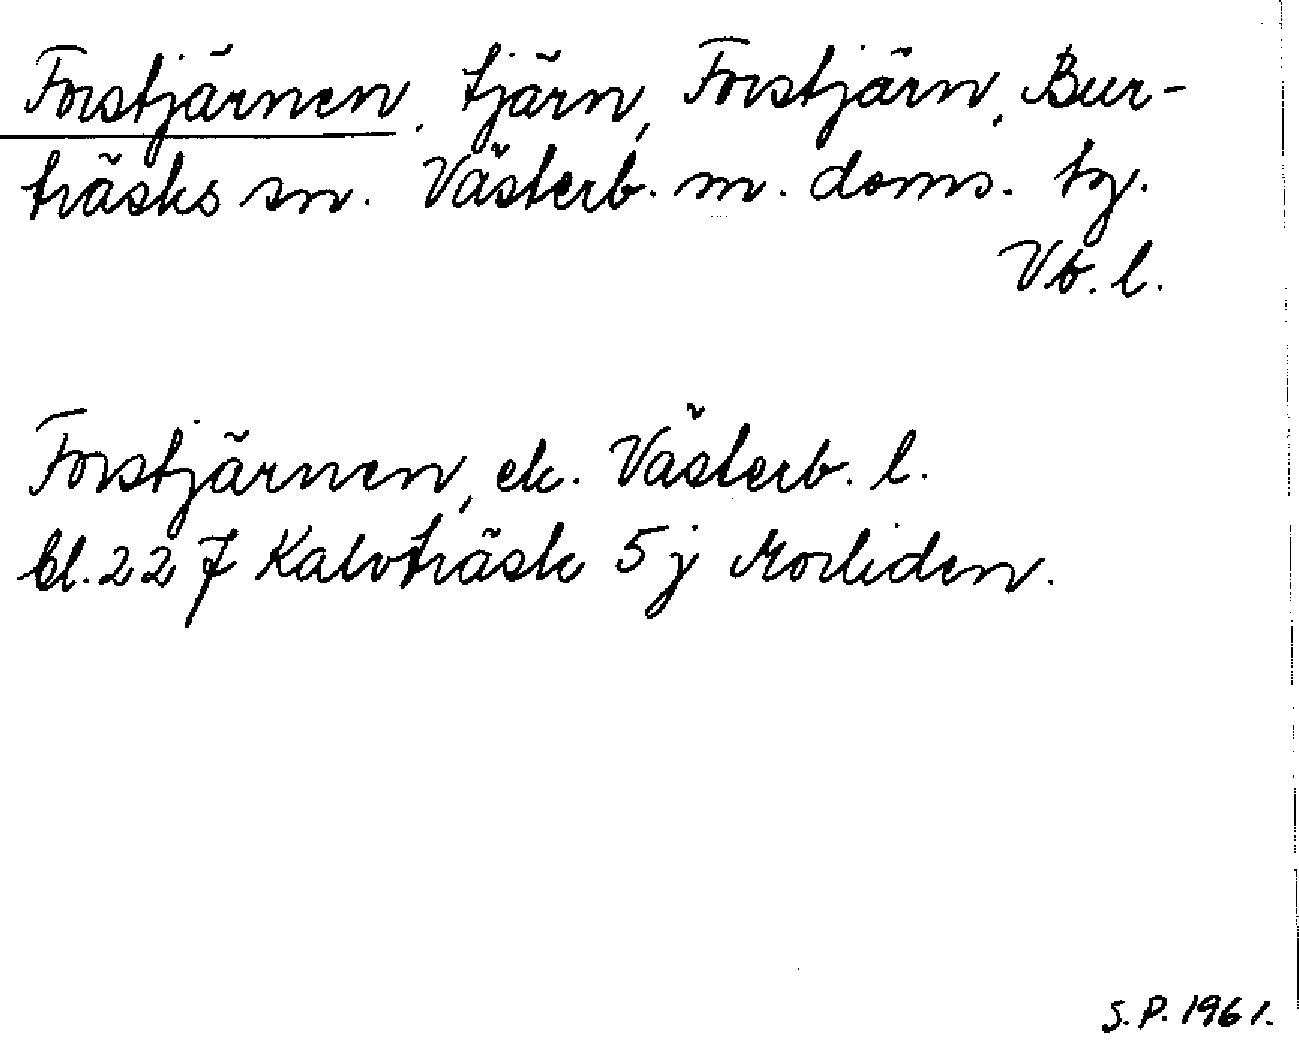 Forstjärnen, tjärn, Forstjärn, Bur-
träsks sn. Västerb. m. doms. tg.
Vb. l.
Forstjärnen, ek. Västerb. l.
bl. 22 J Kalvträsk 5 j Morliden.
S. P. 1961.